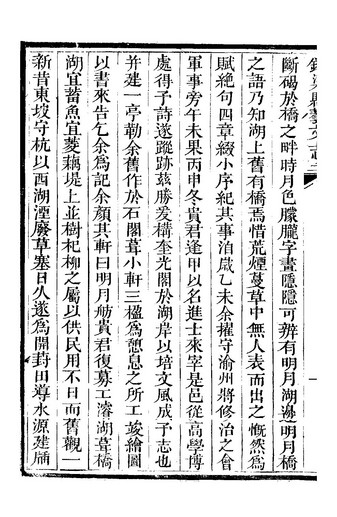 斷碣於橋之畔時月色朦朧字畫隱隱可辨有明月湖邊明月橋
之語乃知湖上舊有橋焉惜荒煙蔓草中無人表而出之慨然爲
賦絶句四章綴小序紀其事洎歲乙未余擢守渝州將修治之會
軍事旁午未果丙申冬貴君逢甲以名進士來宰是邑從高學博
處得予詩遂蹤跡茲勝爰構奎光閣於湖岸以培文風成予志也
并建一亭勒余舊作於石閣葺小軒三楹爲憩息之所工竣繪圖
以書來告乞余爲記余顏其軒曰明月舫貴君復募工濬湖葺橋
湖宜蓄魚宜菱藕堤上並樹杞柳之屬以供民用不日而舊觀一
新昔東坡守杭以西湖湮廢草塞日久遂爲開葑田導水源建牐